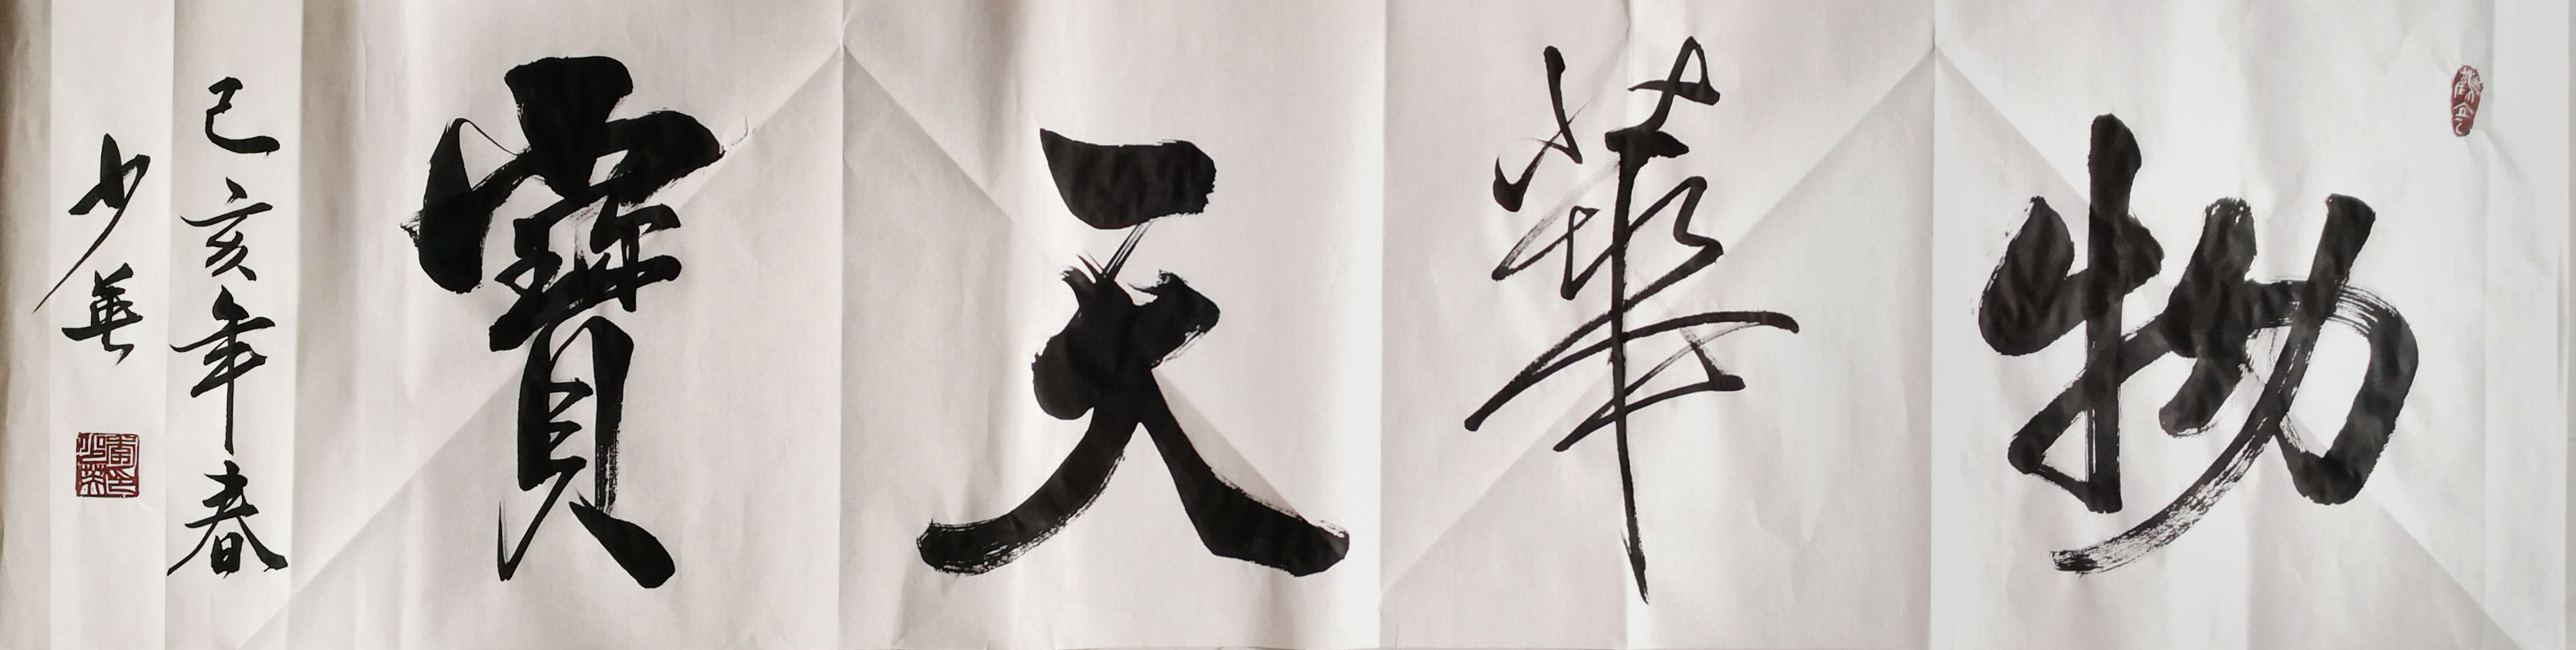 物華天寶
己亥年春
少華